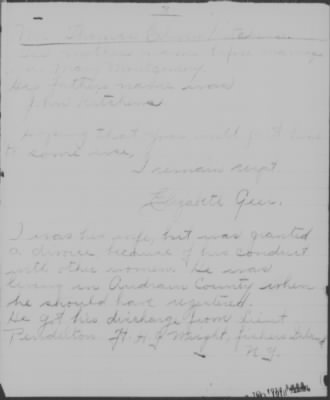 Mr. Thomas
his mothers name before marriage
was Mary Montgomery.
His fathers name was
John Kitchens
Hoping that you will put this
to some use,
I remain respt.
Elizabeth Geer.
I was his wife, but was granted
a divorce because of his conduct
with other women. He was
living in Audrain County when
he should have registered.
He got his discharge from Lieut
Pendelton Ft. H. G. Wright, fishers Island
N. Y.